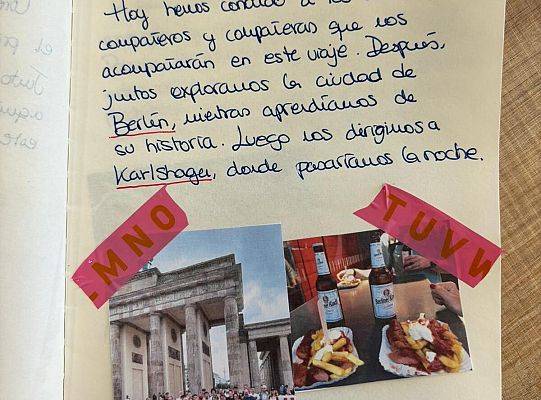 Hoy hemos conocido a los
compañeros y compañeras que nos
acompañarán en este viaje. Después,
juntos exploramos la ciudad de
Berlín, mientras aprendíamos de
su historia. Luego nos dirigimos a
Karlshagen, donde pasaríamos la noche.
LMNO
TUVW
Berliner